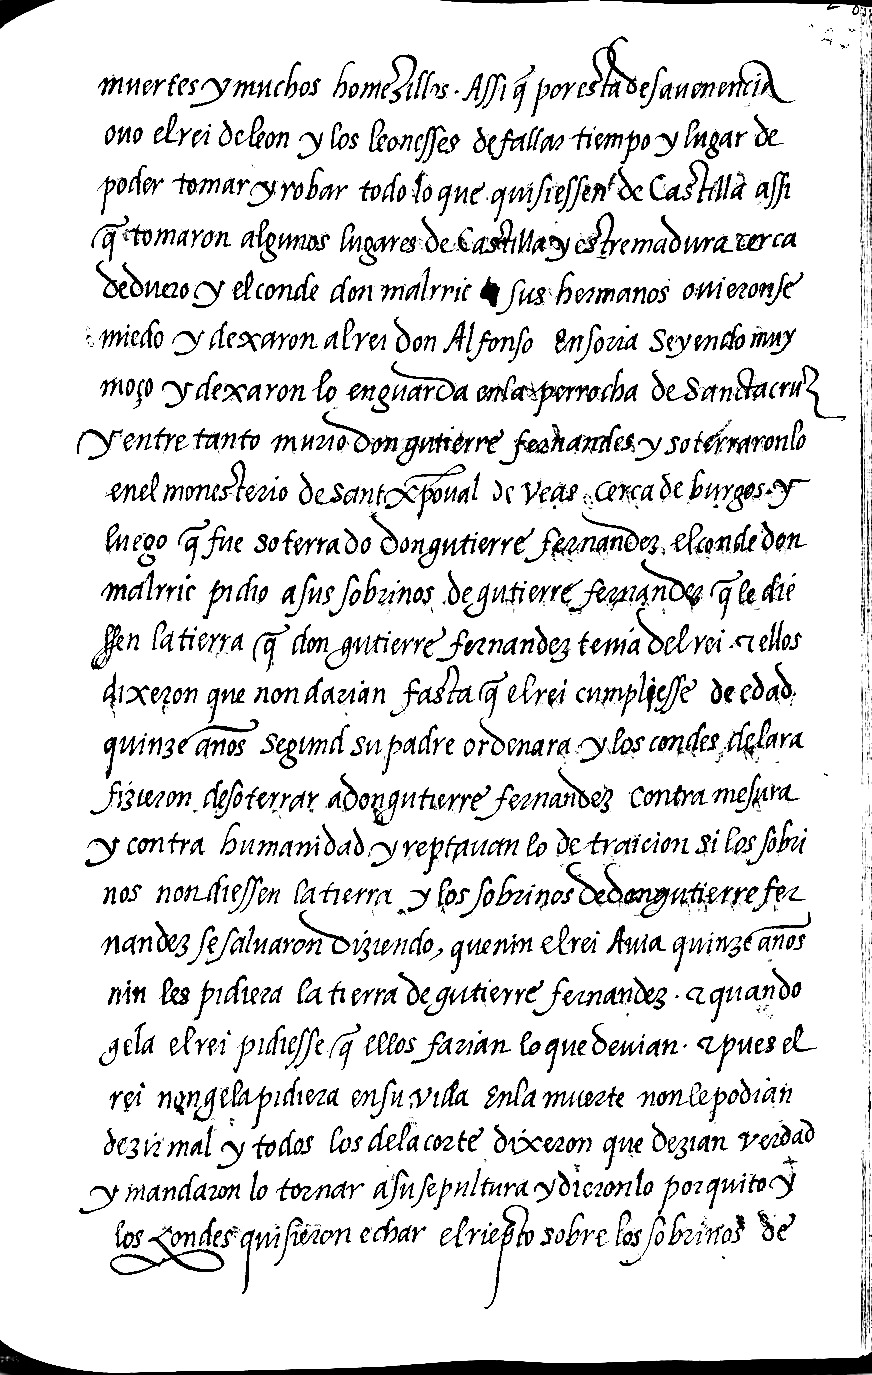 muertes y muchos homezillos. Assi q̃ por esta desauenencia
ouo el rei de leon y los leonesses de fallar tiempo y lugar de
poder tomar y robar todo lo que quisiessen de Castilla assi
q̃ tomaron algunos lugares de Castilla y estremadura cerca
de duero y el conde don malrric sus hermanos ouieronse
miedo y dexaron al rei don Alfonso En soria Seyendo muy
moço y dexaron lo en guarda en la perrocha de Sancta cruz
y entre tanto murio don gutierre fernandes y soterraron lo
en el monesterio de sant xp̃oual de veas cerca de burgos. y
luego q̃ fue soterrado don gutierre fernandez el conde don
malrric pidio a sus sobrinos de gutierre fernandez q̃ le die
ssen la tierra q̃ don gutierre fernandez tenia del rei. & ellos
dixeron que non darian fasta q̃ el rei cumpliesse de edad
quinze años Segund su padre ordenara y los condes de lara
fizieron desoterrar a don gutierre fernandez Contra mesura
y contra humanidad y reptauan lo de traicion si los sobri
nos non diessen la tierra y los sobrinos de don gutierre fer
nandez se saluaron diziendo, que nin el rei Auia quinze años
nin les pidiera la tierra de gutierre fernandez. & quando
gela el rei pidiesse q̃ ellos farian lo que deuian. & pues el
rei non gela pidiera en su vida En la muerte non le podian
dezir mal y todos los de la corte dixeron que dezian verdad
y mandaron lo tornar a su sepultura y dieron lo por quito y
los Condes quisieron echar el riepto sobre los sobrinos de